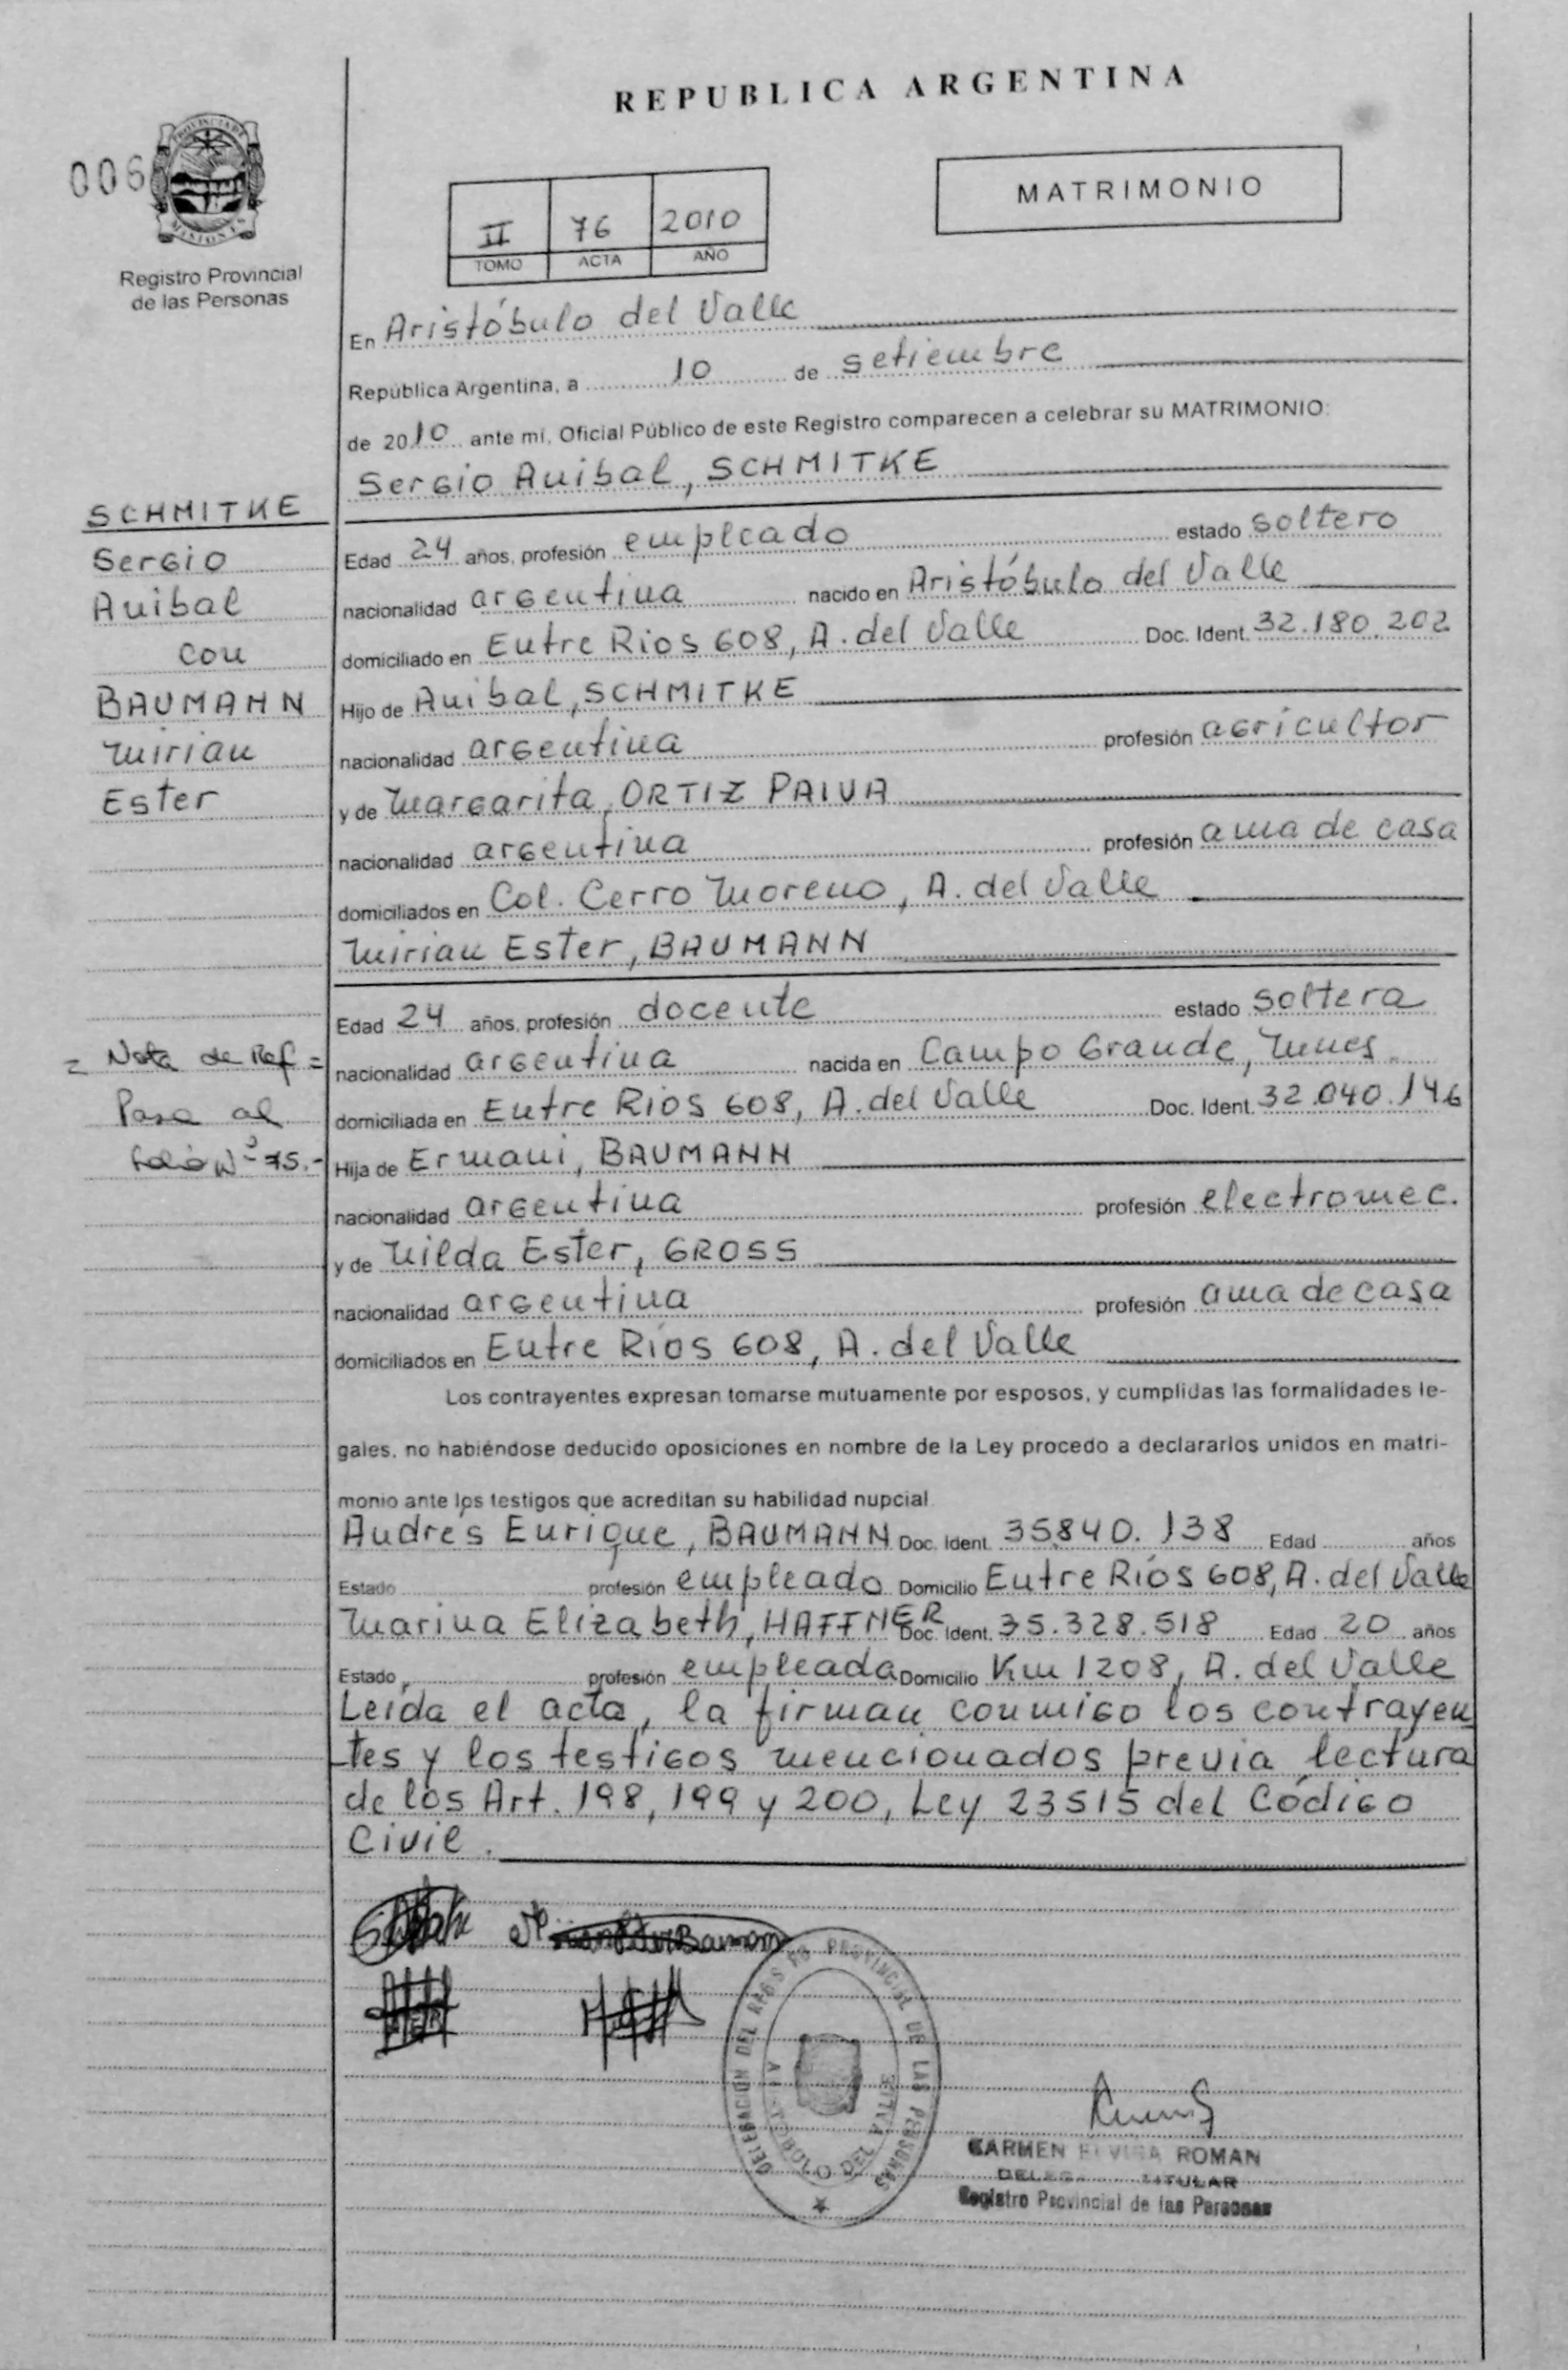 REPUBLICA ARGENTINA
006
PROVINCIA DE
MISIONES
Registro Provincial
de las Personas
II 76 2010
TOMO ACTA AÑO
MATRIMONIO
En Aristóbulo del Valle
República Argentina, a 10 de setiembre
de 2010 ante mí, Oficial Público de este Registro comparecen a celebrar su MATRIMONIO:
Sergio Anibal, SCHMITKE
SCHMITKE
Sergio
Anibal
con
BAUMANN
Mirian
Ester
Edad 24 años, profesión empleado estado soltero
nacionalidad argentina nacido en Aristóbulo del Valle
domiciliado en Entre Rios 608, A. del Valle Doc. Ident. 32.180.202
Hijo de Anibal, SCHMITKE
nacionalidad argentina profesión agricultor
y de Margarita, ORTIZ PAIVA
nacionalidad argentina profesión ama de casa
domiciliados en Col. Cerro Moreno, A. del Valle
Mirian Ester, BAUMANN
Edad 24 años, profesión docente estado soltera
nacionalidad argentina nacida en Campo Grande, Mnes.
domiciliada en Entre Rios 608, A. del Valle Doc. Ident. 32.040.146
= Nota de Ref =
Pasa al
folio Nº 75.-
Hija de Ermani, BAUMANN
nacionalidad argentina profesión electromec.
y de Nilda Ester, GROSS
nacionalidad argentina profesión ama de casa
domiciliados en Entre Ríos 608, A. del Valle
Los contrayentes expresan tomarse mutuamente por esposos, y cumplidas las formalidades le-
gales, no habiéndose deducido oposiciones en nombre de la Ley procedo a declararlos unidos en matri-
monio ante los testigos que acreditan su habilidad nupcial
Andrés Enrique, BAUMANN Doc. Ident. 35.840.138 Edad años
Estado profesión empleado Domicilio Entre Ríos 608, A. del Valle
Marina Elizabeth, HAFFNER Doc. Ident. 35.328.518 Edad 20 años
Estado profesión empleada Domicilio Km 1208, A. del Valle
Leída el acta, la firman conmigo los contrayen
tes y los testigos mencionados previa lectura
de los Art. 198, 199 y 200, Ley 23515 del Código
Civil.
DELEGACION DEL REGISTRO PROVINCIAL DE LAS PERSONAS
CARMEN ELVIRA ROMAN
TITULAR
Registro Provincial de las Personas